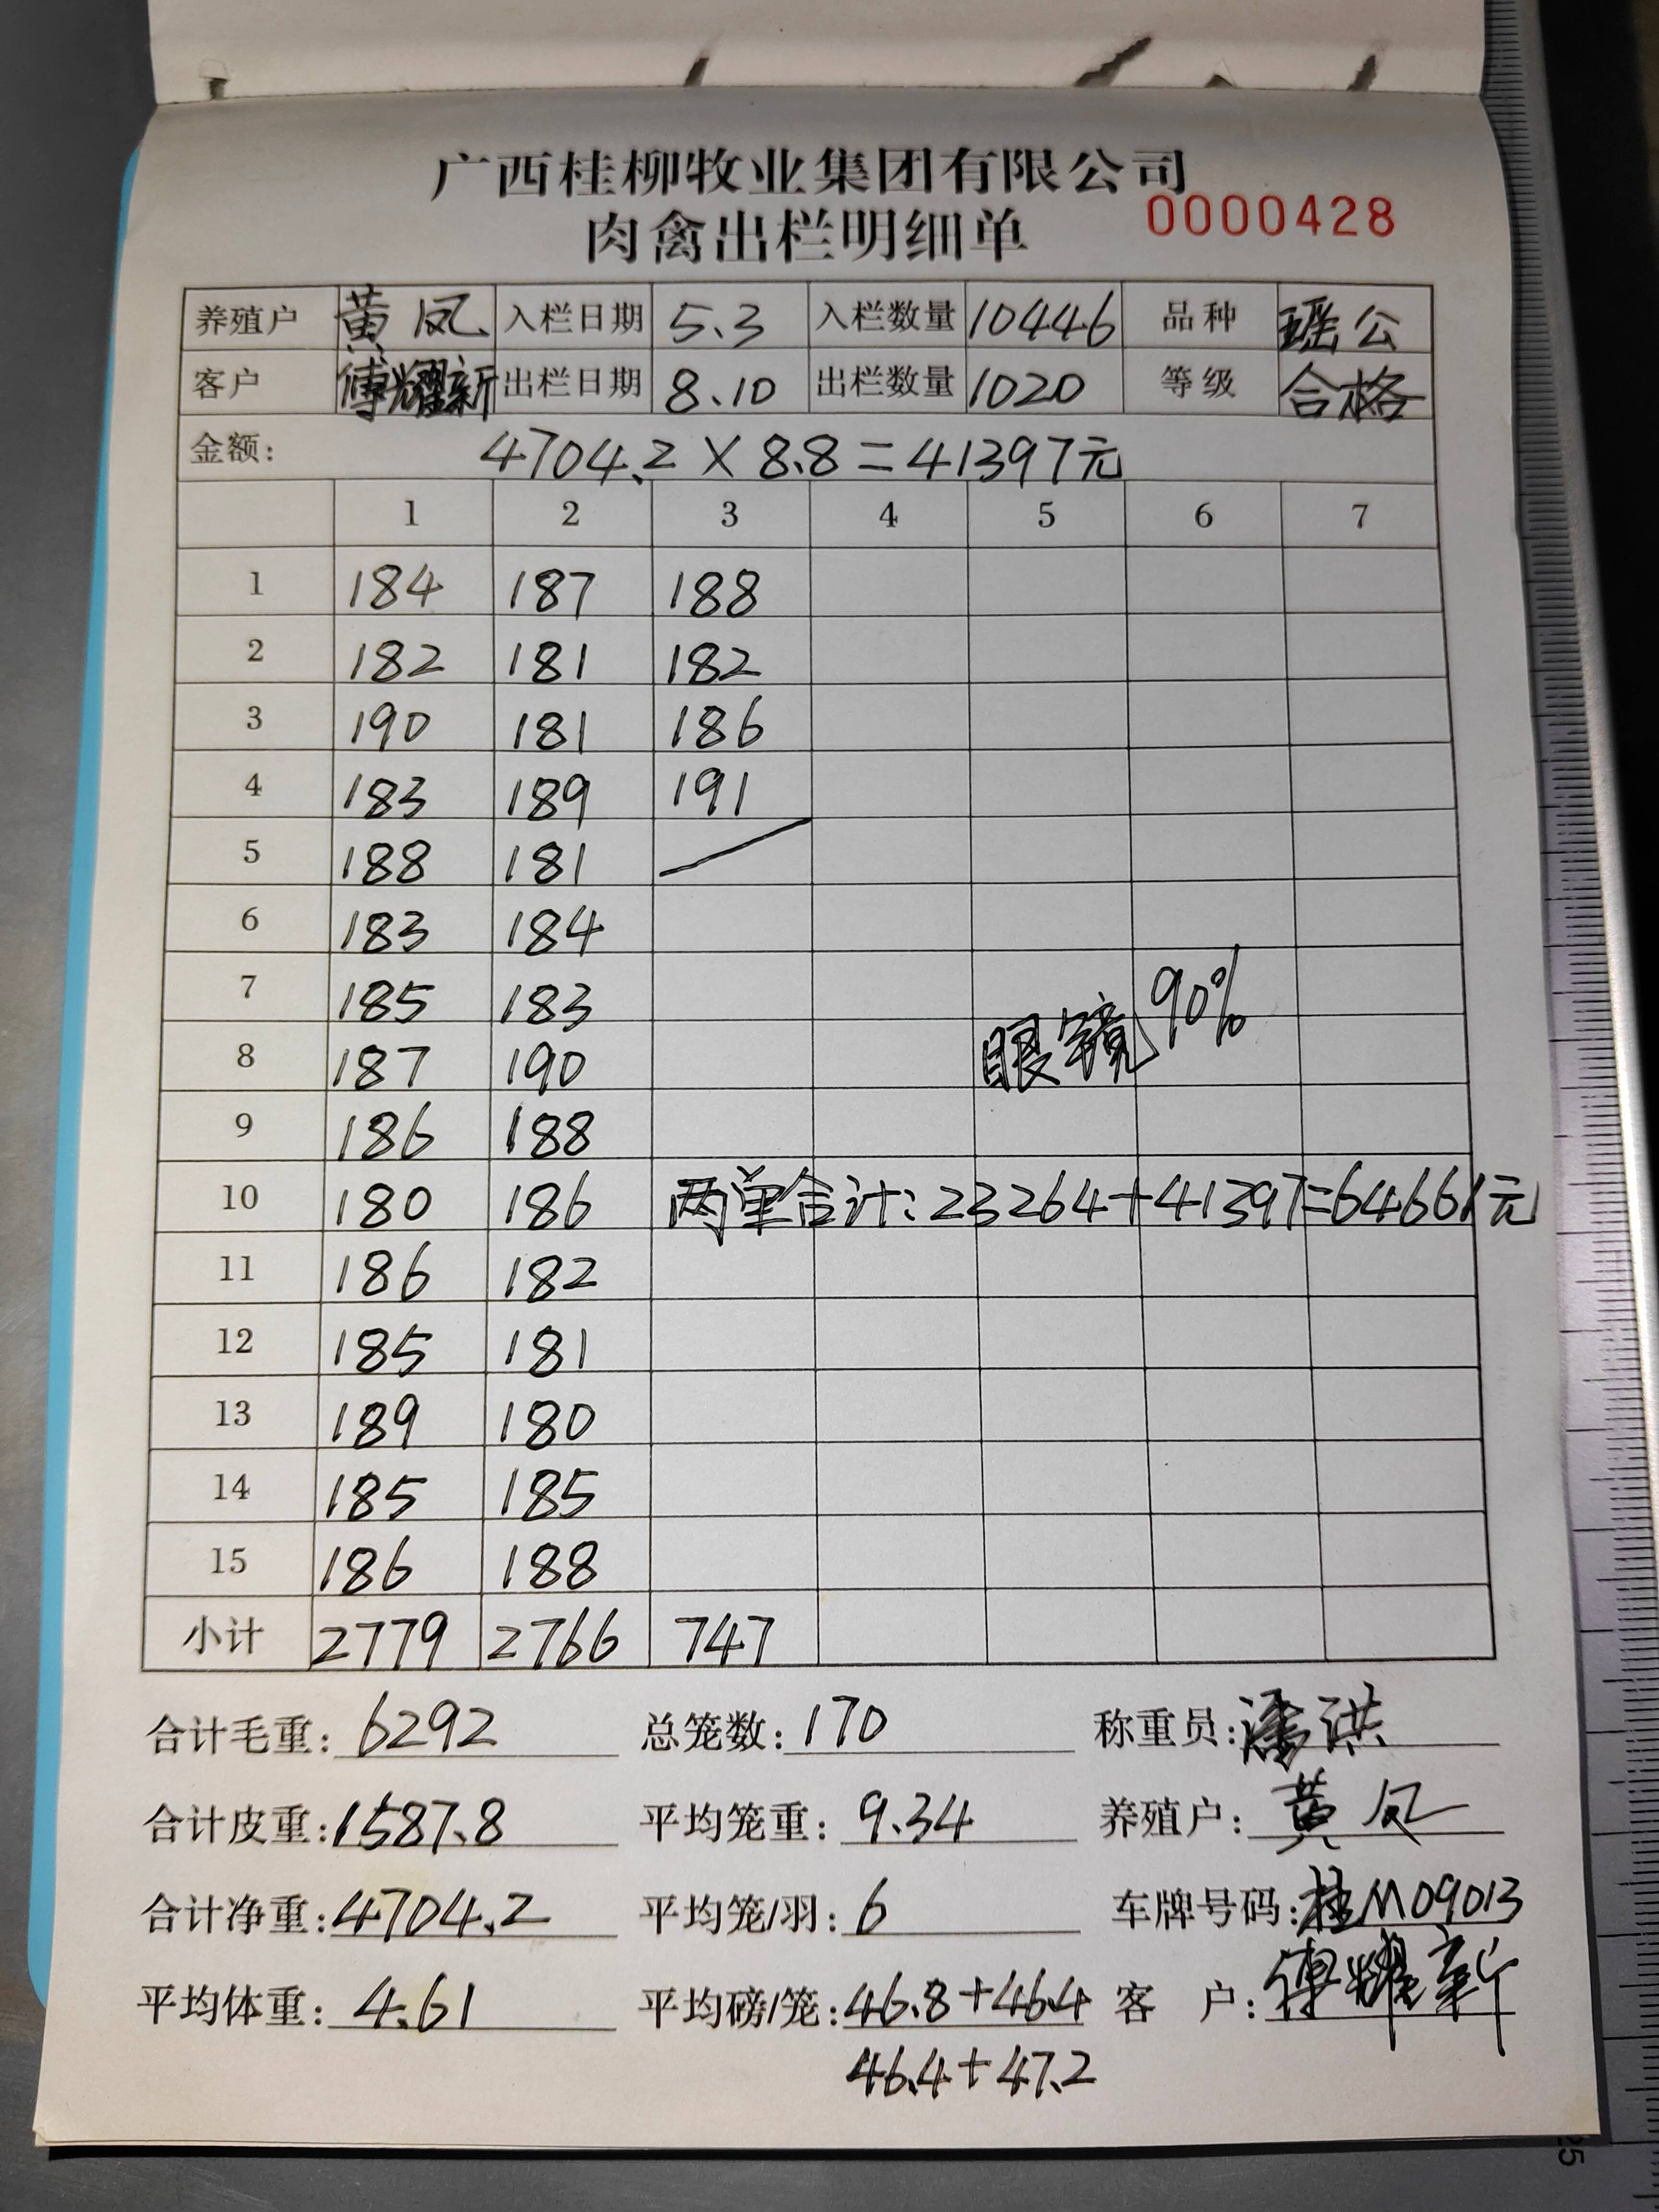 广西桂柳牧业集团有限公司
肉禽出栏明细单 0000428
养殖户 黄凤 入栏日期 5.3 入栏数量 10446 品种 瑶公
客户 傅耀新 出栏日期 8.10 出栏数量 1020 等级 合格
金额: 4704.2×8.8=41397元
1 2 3 4 5 6 7
1 184 187 188
2 182 181 182
3 190 181 186
4 183 189 191
5 188 181
6 183 184
7 185 183
眼镜90%
8 187 190
9 186 188
10 180 186 两单合计:23264+41397=64661元
11 186 182
12 185 181
13 189 180
14 185 185
15 186 188
小计 2779 2766 747
合计毛重: 6292 总笼数: 170 称重员: 潘洪
合计皮重: 1587.8 平均笼重: 9.34 养殖户: 黄凤
合计净重: 4704.2 平均笼/羽: 6 车牌号码: 桂M09013
平均体重: 4.61 平均磅/笼: 46.8+46.4 客 户: 傅耀新
46.4+47.2
25